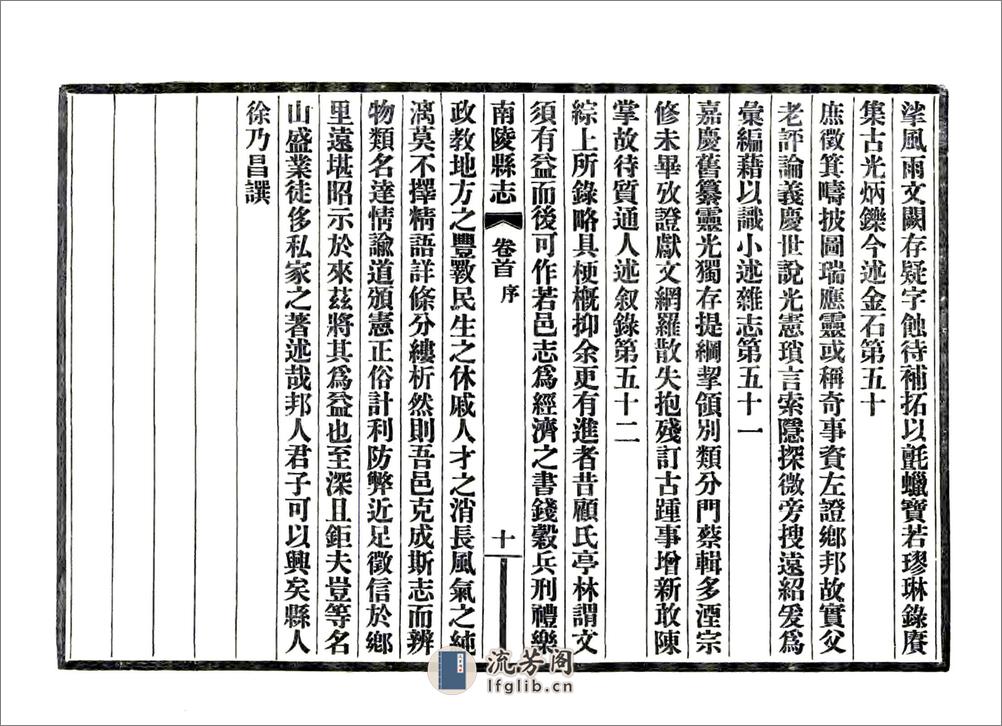 挲風雨文闕存疑字蝕待補拓以氈蠟寶若璆琳錄賡
集古光炳鑠今述金石第五十
庶徵箕疇披圖瑞應靈或稱奇事資左證鄉邦故實父
老評論義慶世說光憲瑣言索隱探微旁搜遠紹爰爲
彙編藉以識小述雜志第五十一
嘉慶舊纂靈光獨存提綱挈領別類分門蔡輯多湮宗
修未畢攷證獻文網羅散失抱殘訂古踵事增新敢陳
掌故待質通人述叙錄第五十二
綜上所錄略具梗槪抑余更有進者昔顧氏亭林謂文
須有益而後可作若邑志爲經濟之書錢穀兵刑禮樂
南陵縣志 卷首 序 十
政教地方之豐斁民生之休戚人才之消長風氣之純
漓莫不擇精語詳條分縷析然則吾邑克成斯志而辨
物類名達情諭道頒憲正俗計利防弊近足徵信於鄉
里遠堪昭示於來茲將其爲益也至深且鉅夫豈等名
山盛業徒侈私家之著述哉邦人君子可以興矣縣人
徐乃昌譔
流芳阁
lfglib.cn